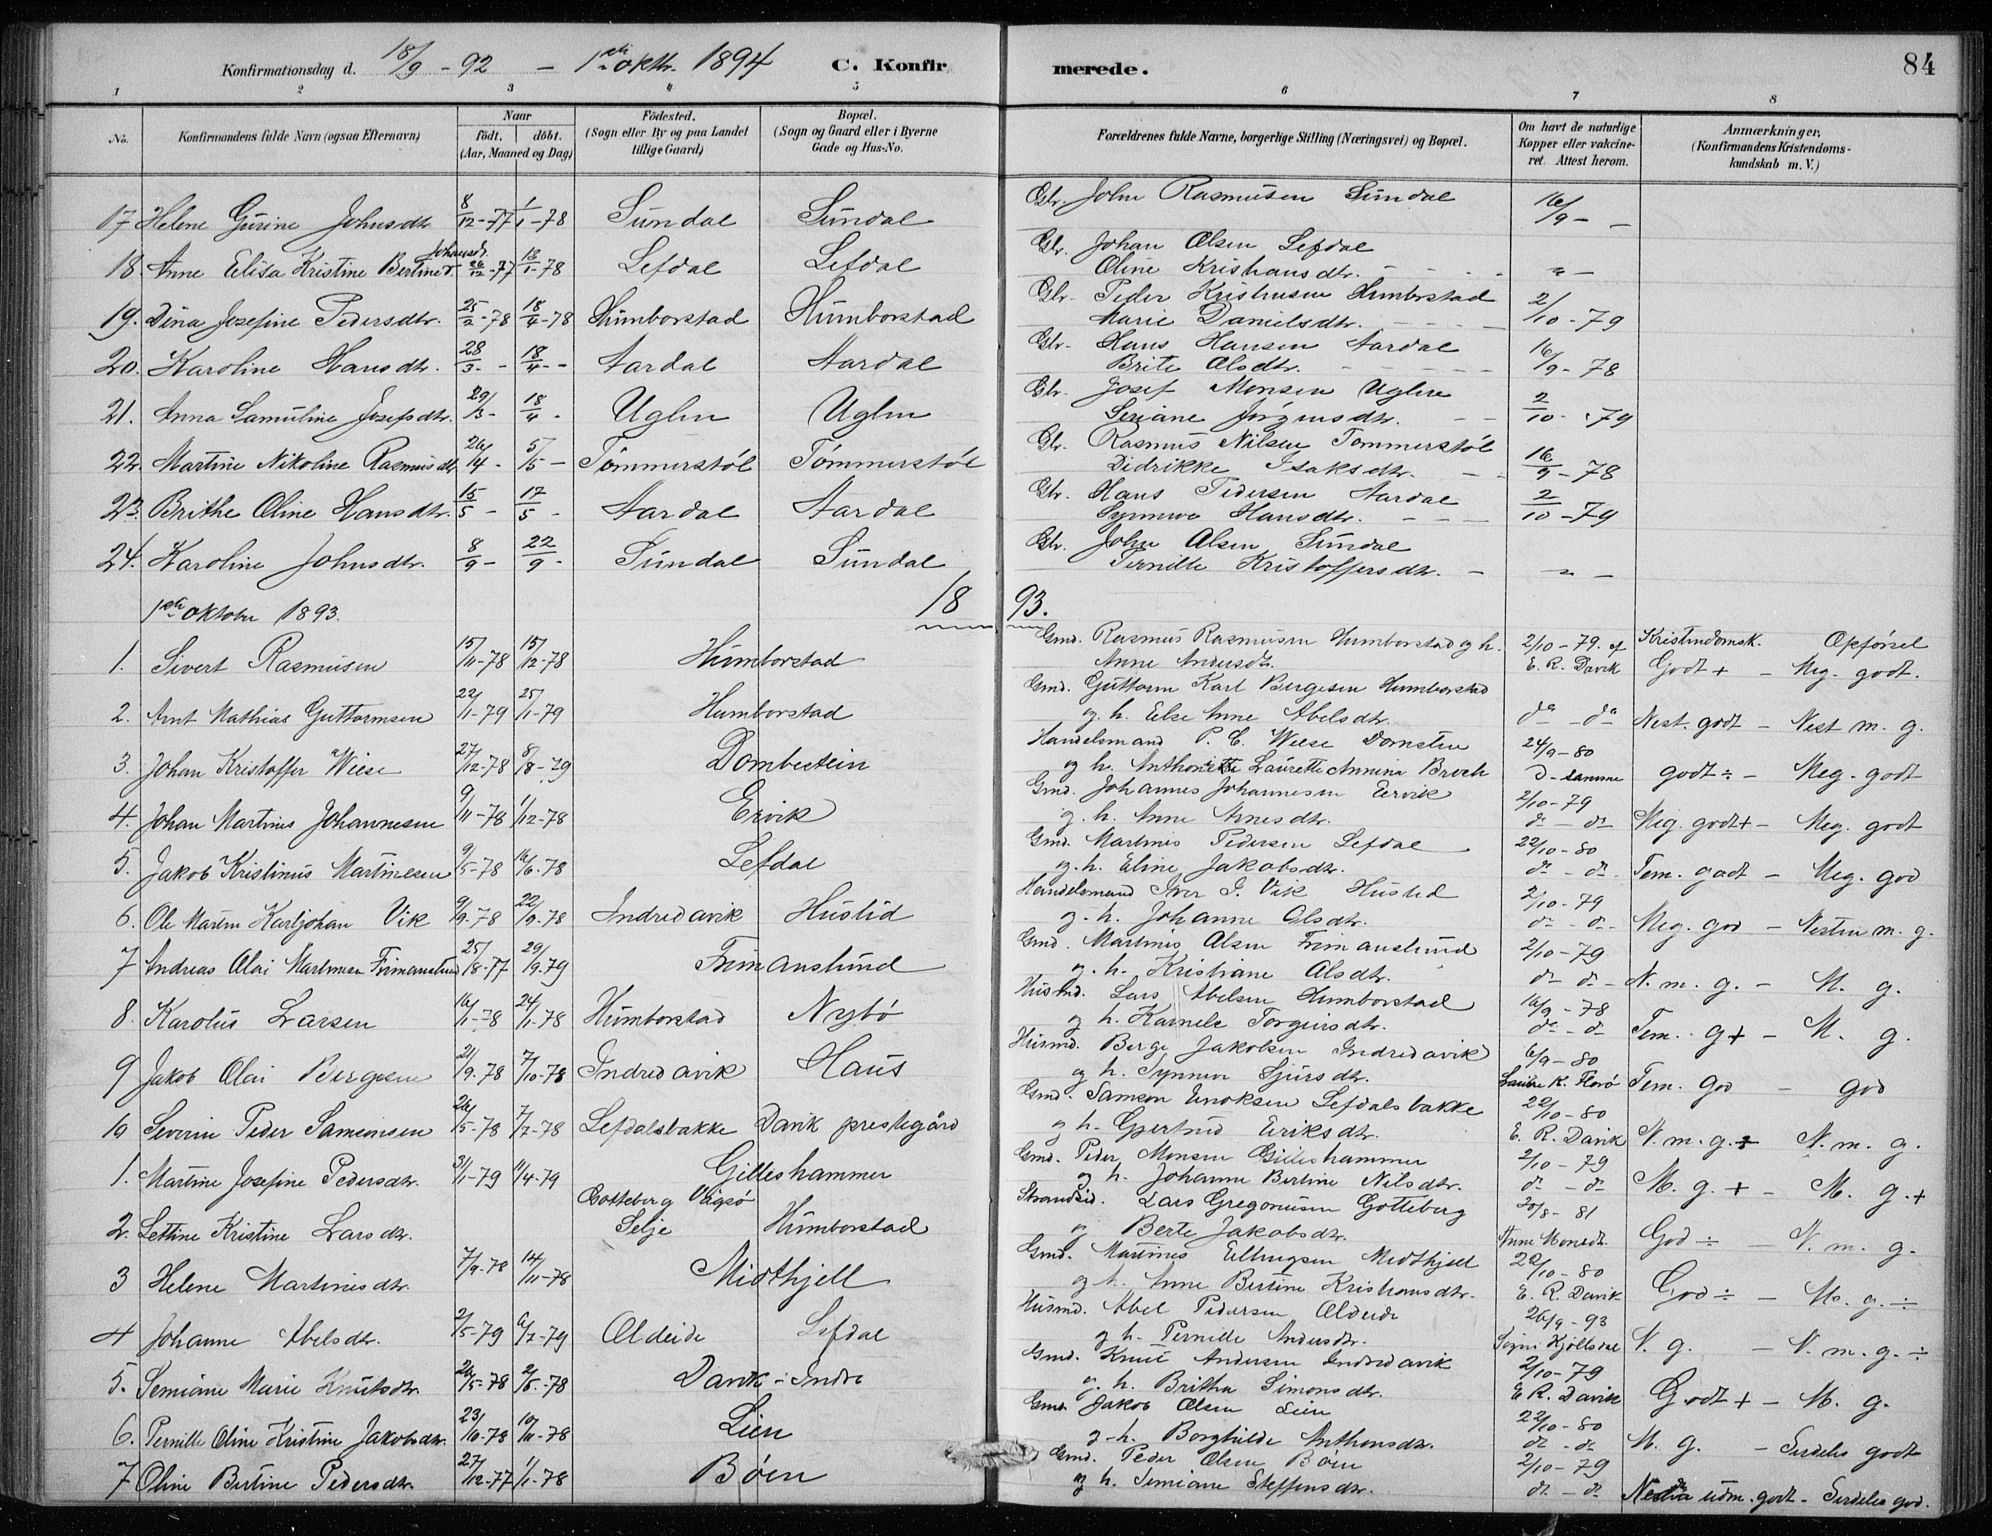 Konfirmationsdag d. 18/9 - 92 - 1ste oktbr. 1894 C. Konfirmerede. 84
1 2 3 4 5 6 7 8
No. Konfirmandens fulde Navn (ogsaa Efternavn) Naar født. døbt. (Aar, Maaned og Dag) Födested. (Sogn eller By og paa Landet tillige Gaard) Bopæl. (Sogn og Gaard eller i Byerne Gade og Hus-No. Forældrenes fulde Navne, borgerlige Stilling (Næringsvei) og Bopæl. Om havt de naturlige Kopper eller vakcineret. Attest herom. Anmærkninger. (Konfirmandens Kristendomskundskab m. V.)
17 Helene Gurine Johnsdtr 8/12-77 1/1-78 Sundal Sundal Gbr. John Rasmusen Sundal 16/9 -
18. Anne Elisa Kristine Bertine Johansd. 26/12-77 13/1-78 Lefdal Lefdal Gbr. Johan Olsen Lefdal
Oline Kristiansdtr. - " -
19. Dina Josefine Pedersdtr. 25/2-78 18/4-78 Humborstad Humborstad Gbr. Peder Kristensen Humborstad
Marie Danielsdtr. 2/10-79
20. Karoline Hansdtr. 28/3 - 18/4 - Aardal Aardal Gbr. Hans Hansen Aardal
Brite Olsdtr. 16/9-78
21. Anna Samuline Josefsdtr. 29/3 - 18/4 - Uglen Uglen Gbr. Josef Monsen Uglen
Seriane Jørgensdtr. 2/10-79
22. Martine Nikoline Rasmusdtr 26/4 - 5/5 - Tömmerstöl Tömmerstöl Gbr. Rasmus Nilsen Tømmerstøl
Didrikke Isaksdtr. 16/9-78
23. Brithe Oline Hansdtr. 15/5 - 17/5 - Aardal Aardal Gbr. Hans Pedersen Aardal
Synneve Hansdtr. 2/10-79
24. Karoline Johnsdtr. 8/9 - 22/9 - Sundal Sundal Gbr. John Olsen Sundal
Pernille Kristoffersdtr. - " -
1ste oktober 1893. 1893.
1. Sivert Rasmusen 15/11-78 15/12-78 Humborstad Gmd. Rasmus Rasmusen Humborstad og h. 2/10-79. af Kristendomsk. Opførsel
Anne Andersdtr. E. R. Davik Godt + - Meg. godt.
2. Arnt Mathias Guttormsen 22/1-79 25/1-79 Humborstad Gmd. Guttorm Karl Bergesen Humborstad
og h. Else Anne Abelsdtr. do - do Nest. godt - Nest m. g.
3. Johan Kristoffer Wiese 27/12-78 8/8-79 Dombestein Handelsmand P. C. Wiese Domsten 24/9-80
og h. Anthonette Laurette Annina Broch d - samme godt ÷ - Meg. godt
4. Johan Martines Johannesen 9/11-78 1/12-78 Ervik Gmd. Johannes Johannesen Ervik 2/10-79
og h. Anne Arnesdtr. do - do Meg. godt + - Meg. godt
5. Jakob Kristinus Martinesen 9/5-78 16/6-78 Lefdal Gmd. Martines Pedersen Lefdal 22/10-80
og h. Eline Jakobsdtr. do - do. Tem. godt - Meg. god
6. Ole Martin Karljohan Vik 9/9-78 22/9-78 Indredavik Hustid Handelsmand Iver J. Vik Hustid 2/10-79
og h. Johanne Olsdtr. do - do. Meg. god - Nesten m. g.
7 Andreas Olai Martinsen Frimanslund 25/18-77 29/19-79 Frimanslund Gmd. Martines Olsen Frimanslund 2/10-79
og h. Kristiane Olsdtr. do - do - N. m. g. - M. g.
8. Karolus Larsen 16/1-78 24/1-78 Humborstad Nybø Husmd. Lars Abelsen Humborstad 16/9-78
og h. Karnele Torgersdtr. do - do Tem. g + - M. g.
9 Jakob Olai Bergesen 21/9-78 7/10-78 Indredavik Haus Husmd. Berge Jakobsen Indredavik 6/9-80
og h. Synneve Sjursdtr. K. Florø Tem. god - god
10 Severin Peder Samsonsen 26/5-78 7/7-78 Lefdalsbakke Davik prestegård Gmd. Samson Enoksen Lefdalsbakke 22/10-80
og h. Gjertrud Eriksdtr. E. R. Davik N. m. g. + N. m. g.
1. Martine Josefine Pedersdtr. 31/1-79 11/4-79 Gilleshammer Gmd. Peder Monsen Gilleshammer 2/10-79
og h. Johanne Bertine Nilsdtr. do - do M. g. + - M. g. +
2. Lettine Kristine Larsdtr. Gotteberg Vågsø Selje Humborstad Strandsid. Lars Gregoriusen Gotteberg 20/8-81
og Berte Jakobsdtr. Anne Monsdtr. God ÷ N. m. g.
3 Helene Martinesdtr. 7/9-78 14/11-78 Midthjell Gmd. Martines Ellingsen Midthjell 22/10-80
og h. Anne Bertine Kristiansdtr. E. R. Davik God ÷ - M. g. ÷
4 Johanne Abelsdtr. 2/5-79 6/7-79 Oldeide Lefdal Husmd. Abel Pedersen Oldeide 26/9-93
og h. Pernille Andersdtr. Kjöllsdal N. g. - N. m. g. ÷
5. Semiane Marie Knutsdtr. 26/5-78 2/6-78 Davik - Indre Gmd. Knut Andersen Indredavik 2/10-79
og h. Britha Simonsdtr. E. R. Davik Godt + - M. g.
6. Pernille Oline Kristine Jakobsdtr. 23/10-78 10/11-78 Lien Gmd. Jakob Olsen Lien 22/10-80
og h. Borghilde Anthonsdtr. do - do M. g. - Serdeles godt
7 Oline Bertine Pedersdtr. 27/12-77 1/1-78 Bøen Gmd. Peder Olsen Bøen 2/10-79
og h. Semiane Steffensdtr. do - do Nesten udm. godt - Serdeles god.